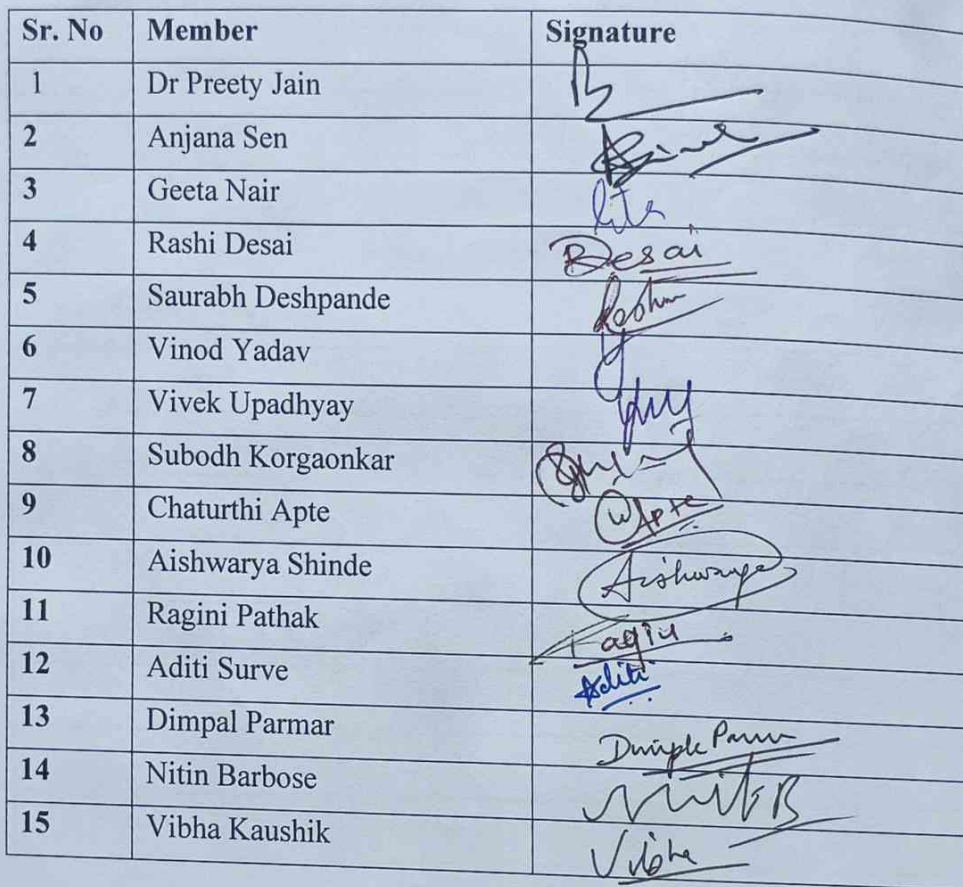 Sr. No Member Signature
1 Dr Preety Jain
2 Anjana Sen
3 Geeta Nair
4 Rashi Desai Desai
5 Saurabh Deshpande
6 Vinod Yadav
7 Vivek Upadhyay
8 Subodh Korgaonkar
9 Chaturthi Apte Apte
10 Aishwarya Shinde Aishwarya
11 Ragini Pathak
12 Aditi Surve Aditi
13 Dimpal Parmar Dimple
14 Nitin Barbose
15 Vibha Kaushik Vibha